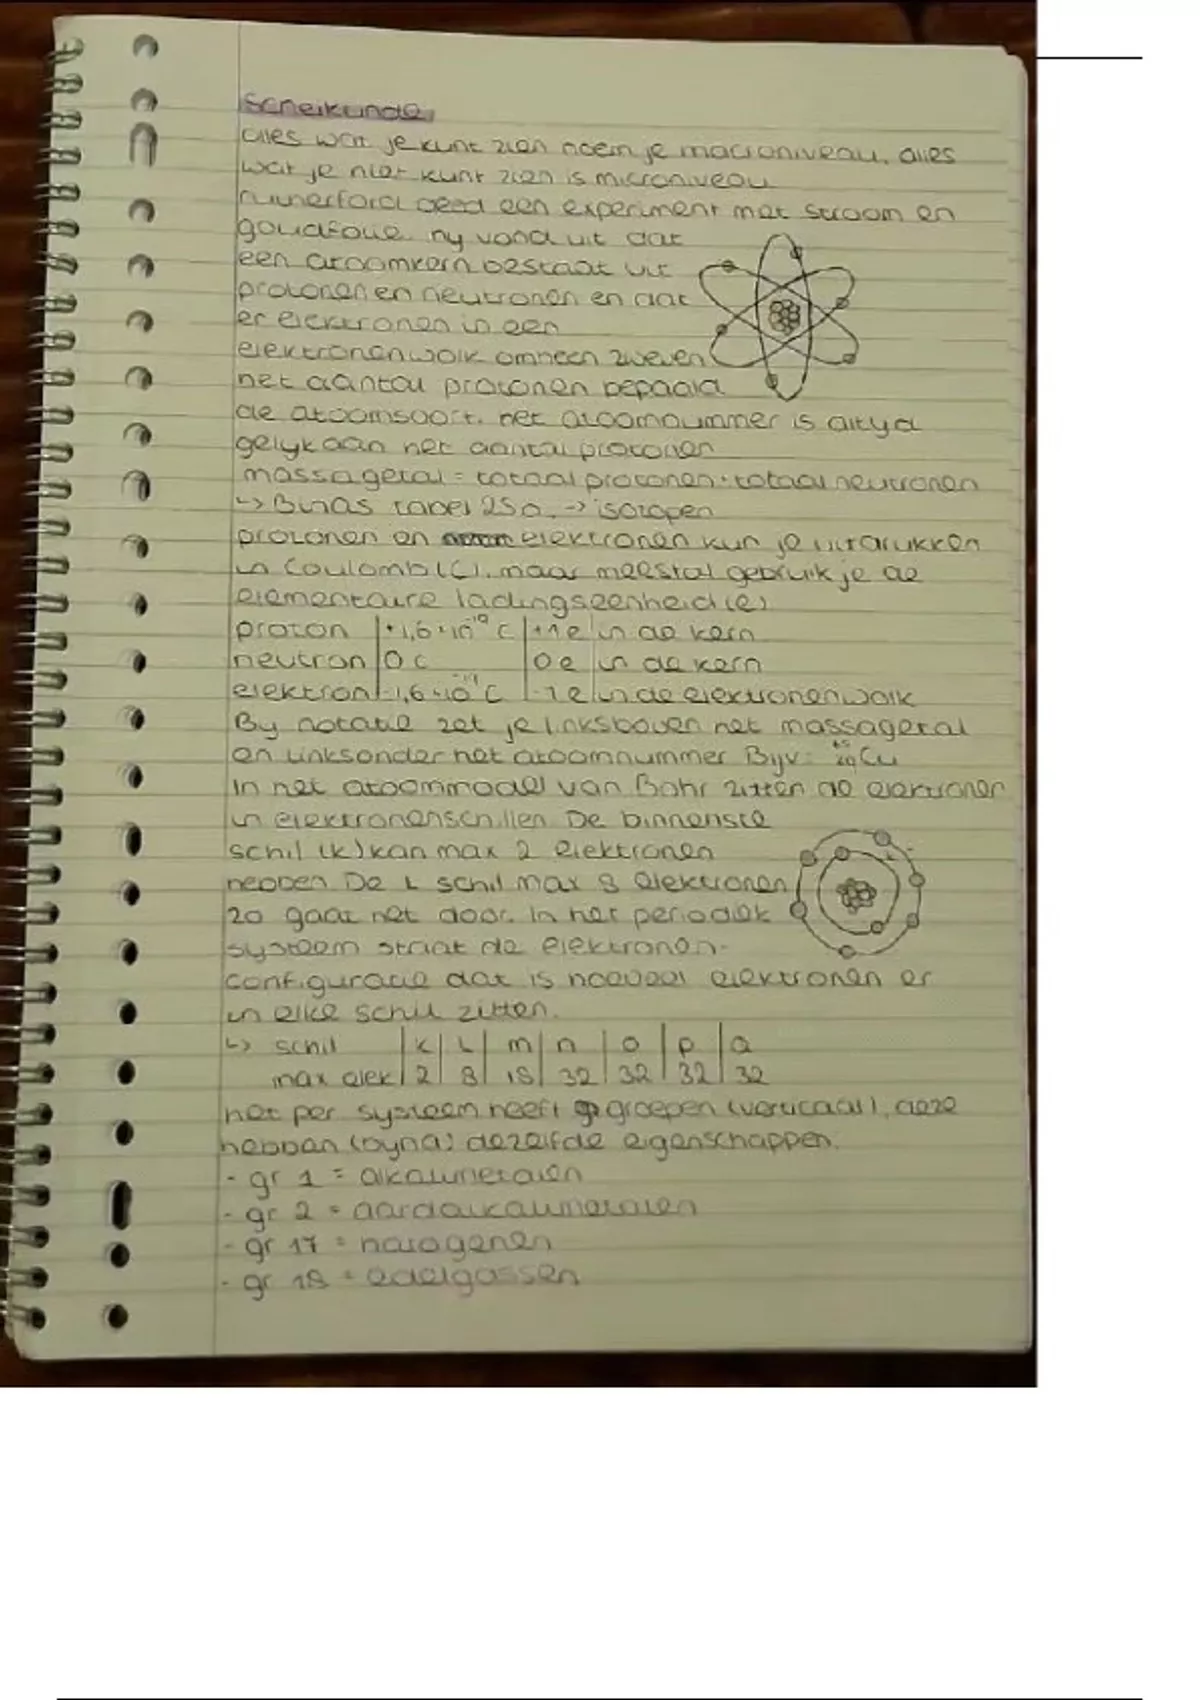 Scheikunde
alles wat je kunt zien noem je macroniveau. alles
wat je niet kunt zien is microniveau
rutherford deed een experiment met stroom en
goudfolie. hy vond uit dat
een atoomkern bestaat uit
protonen en neutronen en dat
er elektronen in een
elektronenwolk omheen zweven
het aantal protonen bepaald
de atoomsoort. het atoomnummer is altyd
gelyk aan het aantal protonen
massagetal = totaal protonen + totaal neutronen
↳ Binas tabel 25a. → isotopen
protonen en elektronen kun je uitdrukken
in Coulomb (C). maar meestal gebruik je de
elementaire ladingseenheid (e)
proton | +1,6·10⁻¹⁹ C | +1 e | in de kern
neutron | 0 C | 0 e | in de kern
elektron | -1,6·10⁻¹⁹ C | -1 e | in de elektronenwolk
By notatie zet je linksboven het massagetal
en linksonder het atoomnummer Bijv: ⁶⁵₂₉Cu
In het atoommodel van Bohr zitten de elektronen
in elektronenschillen. De binnenste
schil (K) kan max 2 elektronen
hebben De L schil max 8 elektronen
zo gaat het door. In het periodiek
systeem staat de elektronen-
configuratie dat is hoeveel elektronen er
in elke schil zitten.
↳ schil | K | L | m | n | O | P | Q
max elek | 2 | 8 | 18 | 32 | 32 | 32 | 32
het per systeem heeft groepen (verticaal), deze
hebben (byna) dezelfde eigenschappen.
- gr 1 = alkalimetalen
- gr 2 = aardalkalimetalen
- gr 17 = halogenen
- gr 18 = edelgassen